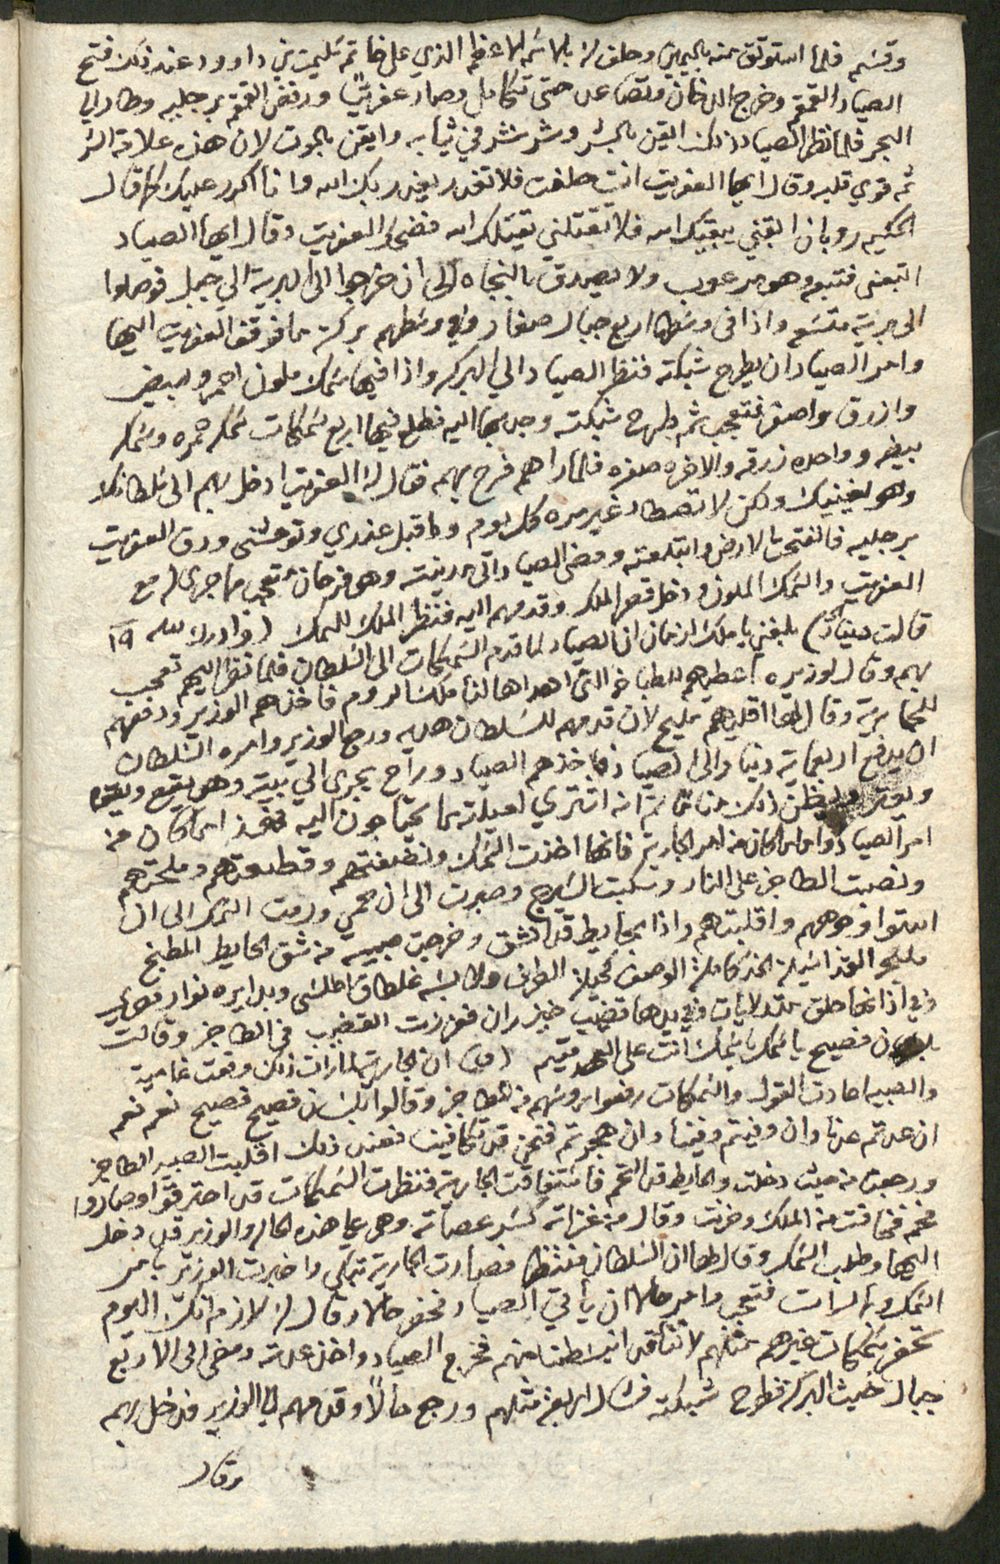 وقسم فلما استوثق منه باليمين وحلف له بالاسم الاعظم الذي على خاتم سليمان بن داوود عند ذلك فتح
الصياد القمقم وخرج الدخان وتصاعد حتى تكامل وصار عفريتًا ورفص القمقم برجليه وطار الي
البحر فلما نظر الصياد ذلك ايقن بالشر وشرشر في ثيابه وايقن بالموت لان هذه علامة الشر
ثم قوي قلبه وقال ايها العفريت انت حلفت فلا تغدر يغدر بك الله وانا اكرر عليك كما قال
الحكيم رويان ابقني يبقيك الله فلا تقتلني يقتلك الله فضحك العفريت وقال ايها الصياد
اتبعني فتبعه وهو مرعوب ولا يصدق بالنجاه الى ان خرجوا الى البرية الي جبل فوصلوا
الى برية متسعه واذا في وسطها اربع جبال صغار وفي وسطهم بركة ما فوقف العفريت اليها
وامر الصياد ان يطرح شبكته فنظر الصياد الي البركه واذا فيها سمك ملون احمر وابيض
وازرق واصفر فتعجب ثم طرح شبكته وجدبها اليه فطلع فيها اربع سمكات سمكه حمره وسمكه
بيضه وواحده زرقه والاخره صفره فلما راهم فرح بهم فقال له العفريت ادخل بهم الى سلطانك
وهو يغنيك ولكن لا تصطاد غير مره كل يوم واقبل عذري وتوحشني ودق العفريت
برجليه فانفتحت الارض وابتلعته ومضى الصياد اتى مدينته وهو فرحان تعجب مما جرى له مع
العفريت والسمك الملون ودخل قصر الملك وقدمهم اليه فنظر الملك للسمك (وادرك ليله ١٩
قالت دينازاد) بلغني يا ملك الزمان ان الصياد لما قدم السمكات الى السلطان فلما نظر اليهم تعجب
بهم وقال لوزيره اعطيهم للطباخه التي اهداها لنا ملك الروم فاخذهم الوزير ودفعهم
للجاريه وقال لها اقليهم مليح لان قدمهم للسلطان هديه ورجع الوزير وامره السلطان
ان يدفع اربعماية دينار الى الصياد فاخذهم الصياد وراح يجري الي بيته وهو يقع ويقوم
ويعتر ويظن ذلك منام ثم انه اشتري لعيلته ما يحتاجون اليه فهذا ما كان من
امر الصياد واما ما كان من امر الجاريه فانها اخذت السمك ونضفتهم وقطعتهم وملحتهم
ونصبت الطاجن على النار وسكبت السيرج وصبرت الى ان حمي ورمت السمك الى ان
استوا وجوههم واقلبتهم واذا بحايط قد انشق وخرجت صبيه من شق الحايط المطبخ
مليحه القد اسيلة الخد كاملة الوصف كحيلة الطرف ولابسه غلطاق اطلس وبدايره نوار مصري
وفي اذانها حلق متدليات وفي يدها قضيب خيزران فغرزت القضيب في الطاجن وقالت
بلسان فصيح يا سمك يا سمك انت على العهد مقيم ان الجاريه لما رات ذلك وقعت غاميه
والصبيه اعادت القول والسمكات رفعوا روسهم من الطاجن وقالوا بلسان فصيح فصيح نعم نعم
ان عدتم عدنا وان وفيتم وفينا وان هجرتم فنحن قد تكافينا فعند ذلك اقلبت الصبيه الطاجن
ورجعت من حيث دخلت والحايط قد التحم فاستفاقت الجاريه فنظرت السمكات قد احترقوا وصاروا
فحم فخافت من الملك وحزنت وقال من غزاته كسر عصاته وهي علي هذه الحاله والوزير قد دخل
اليها وطلب السمك وقال لها ان السلطان منتظر فصارت الجاريه تبكي واخبرت الوزير بامر
السمك وما رات فتعجب وامر حالا ان ياتي الصياد فحضر حالا وقال له لازم انك اليوم
تحضر سمكات غيرهم مثلهم لاننا قد انبسطنا منهم فخرج الصياد واخذ عدته ومضى الى الاربع
جبال حيث البركه فطرح شبكته فشال اربعه مثلهم ورجع حالًا وقدمهم الي الوزير فدخل بهم
وقال